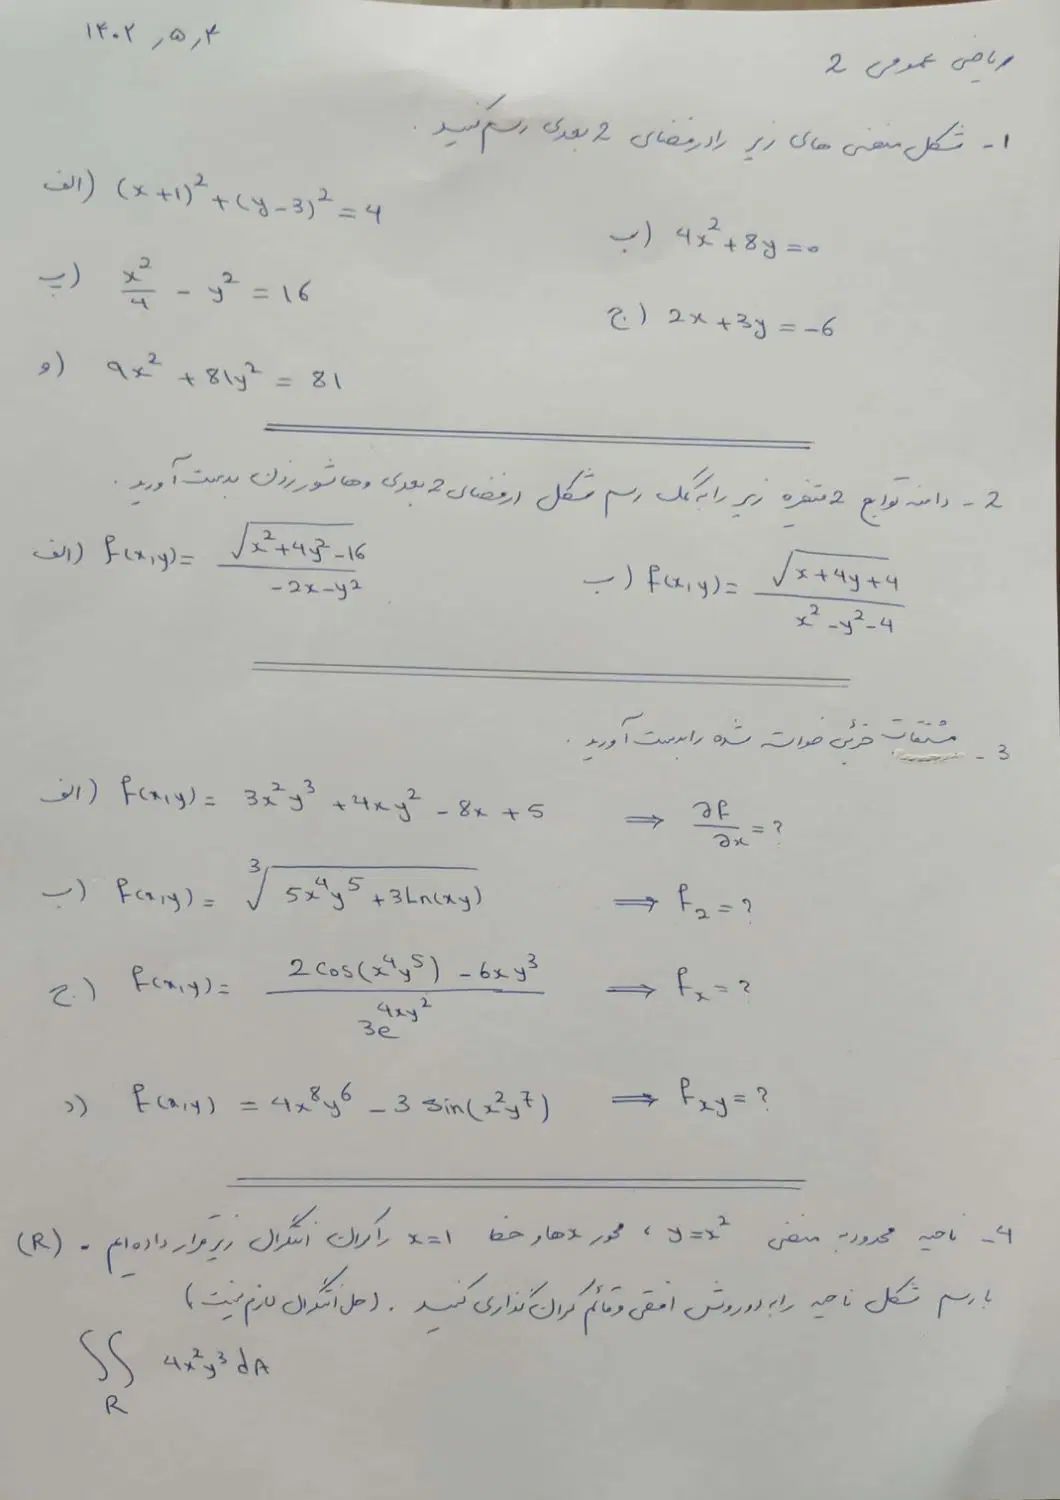 ۱۴۰۲ر۵ر۴
ریاضی عمومی 2
1- شکل منحنی های زیر را در فضای 2 بعدی رسم کنید.
الف) (x+1)² + (y-3)² = 4
ب) 4x² + 8y = 0
پ) x²/4 - y² = 16
ج) 2x + 3y = -6
و) 9x² + 81y² = 81
2- دامنه توابع 2 متغیره زیر را به کمک رسم شکل در فضای 2 بعدی و هاشور زدن بدست آورید.
الف) f(x,y) = √(x²+4y²-16) / (-2x-y²)
ب) f(x,y) = √(x+4y+4) / (x²-y²-4)
3- مشتقات جزئی خواسته شده را بدست آورید.
الف) f(x,y) = 3x²y³ + 4xy² - 8x + 5 ⇒ ∂f/∂x = ?
ب) f(x,y) = ∛(5x⁴y⁵ + 3Ln(xy)) ⇒ f₂ = ?
ج) f(x,y) = (2cos(x⁴y⁵) - 6xy³) / 3e^(4xy²) ⇒ fₓ = ?
د) f(x,y) = 4x⁸y⁶ - 3 sin(x²y⁷) ⇒ fxy = ?
4- ناحیه محدود به منحنی y=x² ، محور x ها و خط x=1 را کران انتگرال زیر قرار داده ایم. (R)
با رسم شکل ناحیه را به دو روش افقی و قائم کران گذاری کنید. (حل انتگرال لازم نیست)
∬ 4x²y³ dA
R